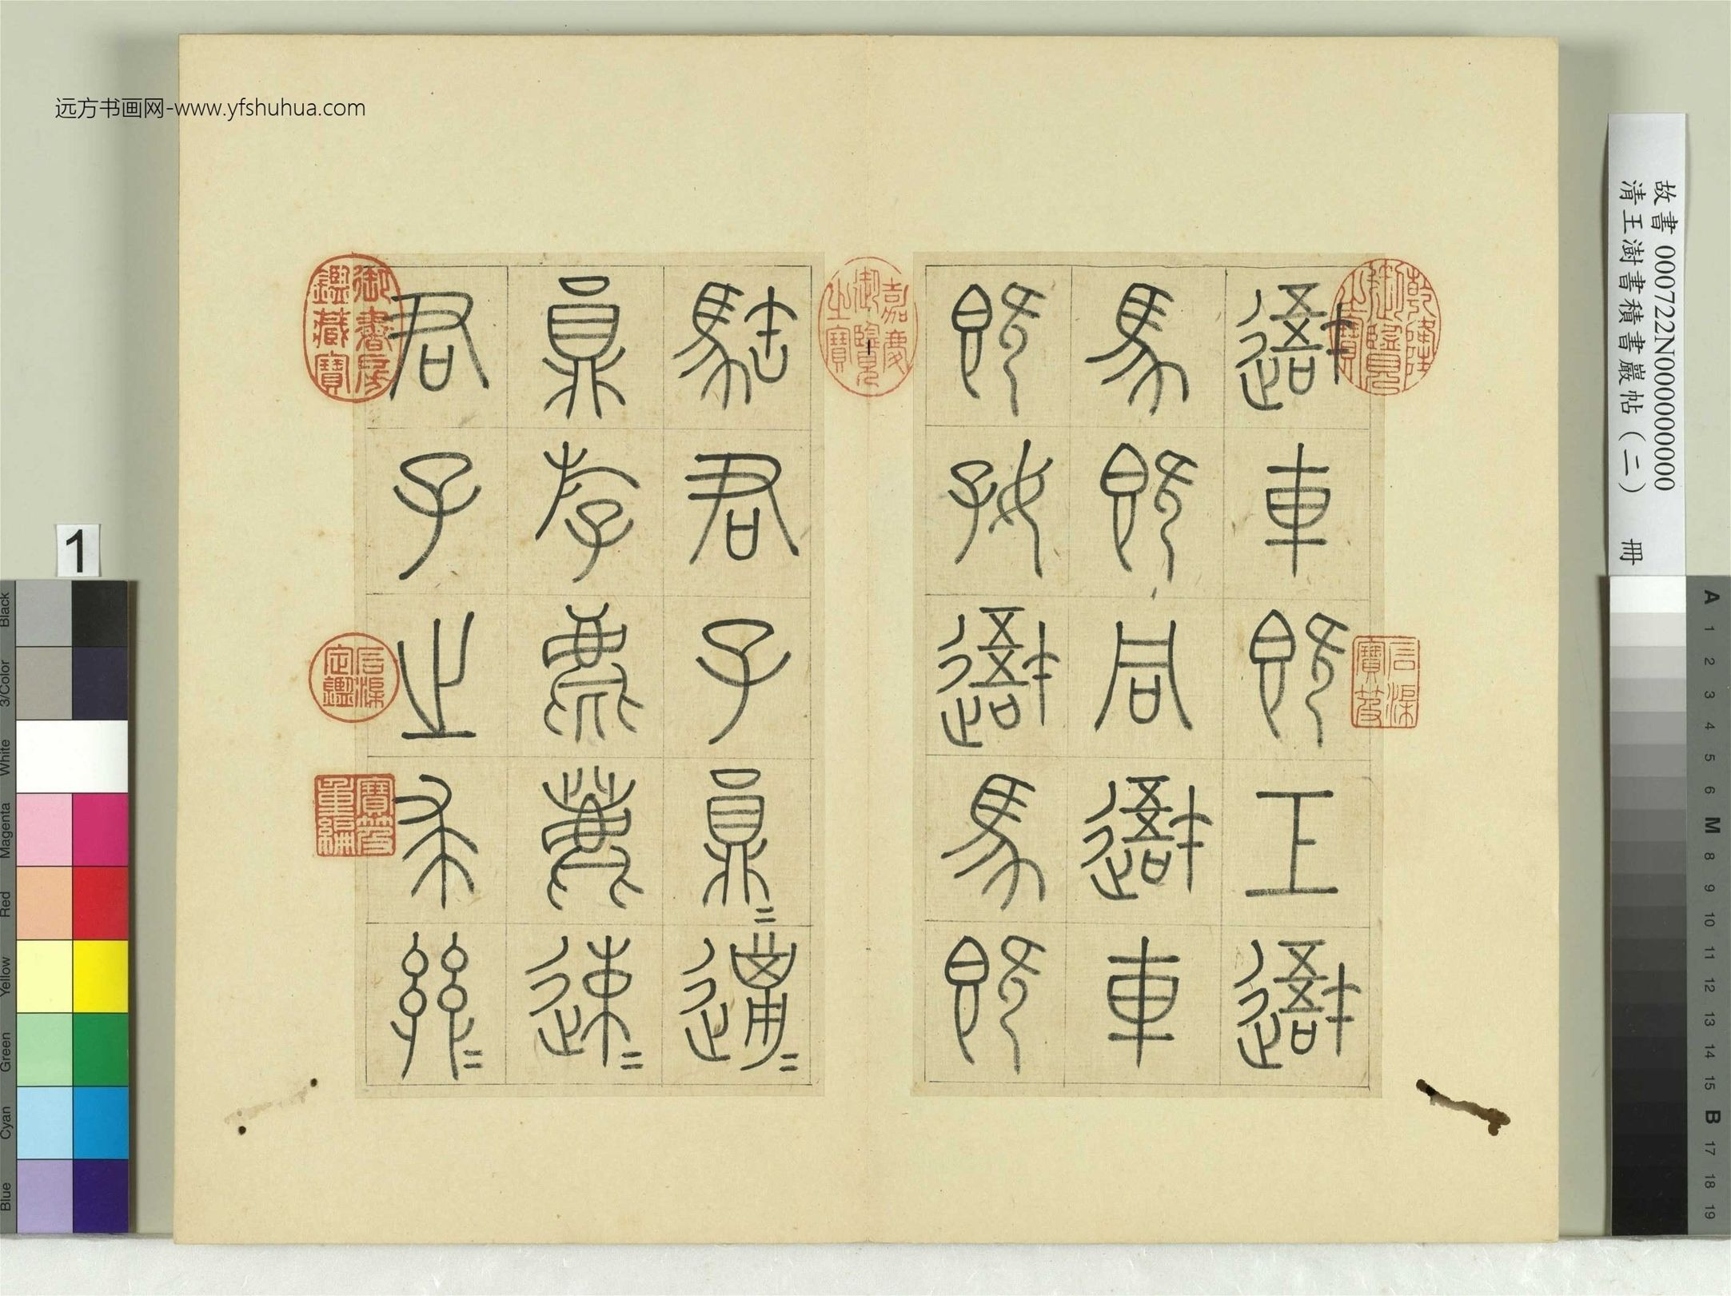 远方书画网-www.yfshuhua.com
避車既工避
馬既同避車
既好避馬既
駐君子鼎=邋=
鼎斿麀鹿速=
君子之求
嘉慶御覽之寶
乾隆御覽之寶
石渠寶笈
御書房鑑藏寶
石渠定鑑
寶笈重編
故書 000722N000000000
清王澍書積書巖帖（二） 冊
1
Black
3/Color
White
Magenta
Red
Yellow
Green
Cyan
Blue
A
1
2
3
4
5
6
M
8
9
10
11
12
13
14
15
B
17
18
19